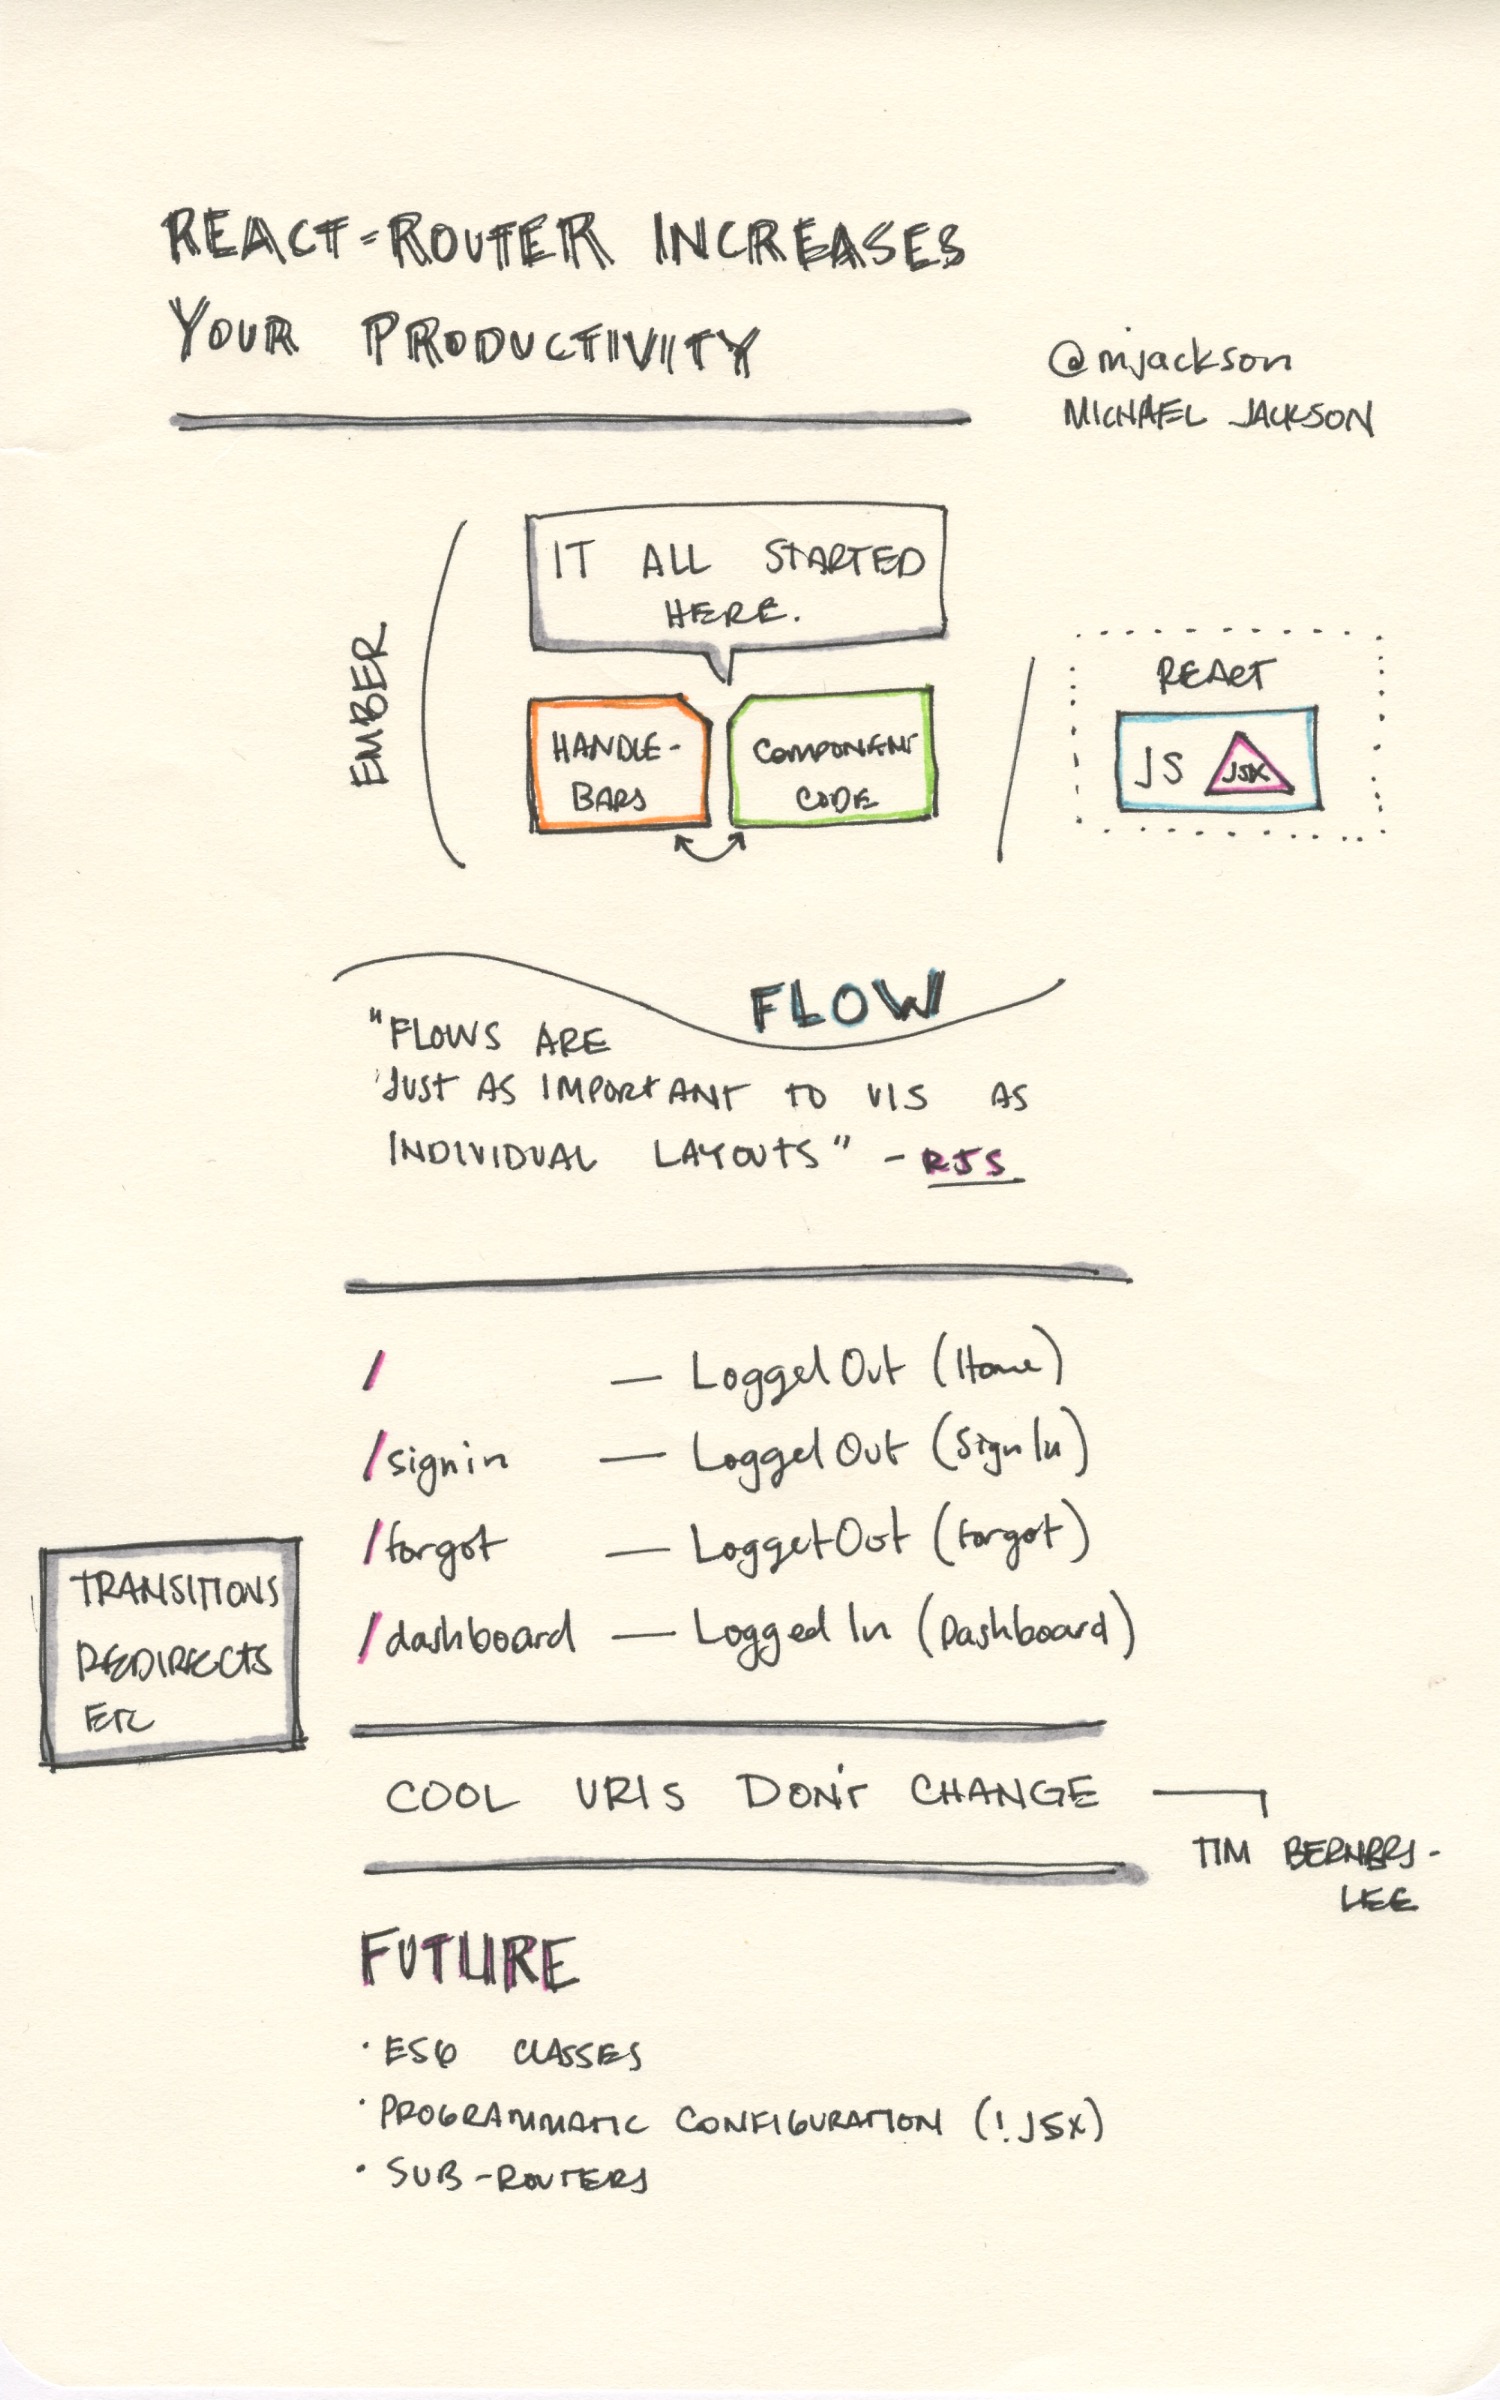 REACT-ROUTER INCREASES
YOUR PRODUCTIVITY
@mjackson
MICHAEL JACKSON
IT ALL STARTED
HERE.
EMBER
HANDLE-
BARS
COMPONENT
CODE
REACT
JS
JSX
FLOW
"FLOWS ARE
JUST AS IMPORTANT TO VIS AS
INDIVIDUAL LAYOUTS" - RJS
/ — Logged Out (Home)
/signin — Logged Out (Sign In)
/forgot — Logget Out (Forgot)
/dashboard — Logged In (Dashboard)
TRANSITIONS
REDIRECTS
ETC
COOL URIS DON'T CHANGE
TIM BERNERS-
LEE
FUTURE
· ES6 CLASSES
· PROGRAMMATIC CONFIGURATION (!JSX)
· SUB-ROUTERS